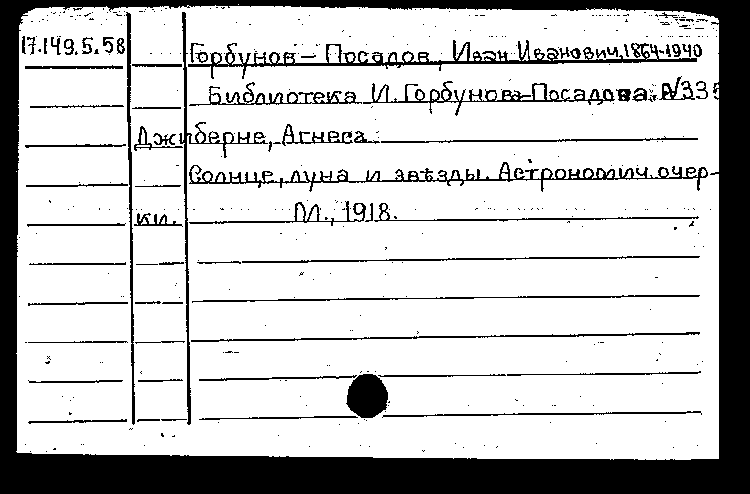 17.149.5.58 Горбунов-Посадов, Иван Иванович, 1864-1940
Библиотека И. Горбунова-Посадова. №335
Джиберне, Агнеса.
Солнце, луна и звѣзды. Астрономич. очер-
ки. М., 1918.